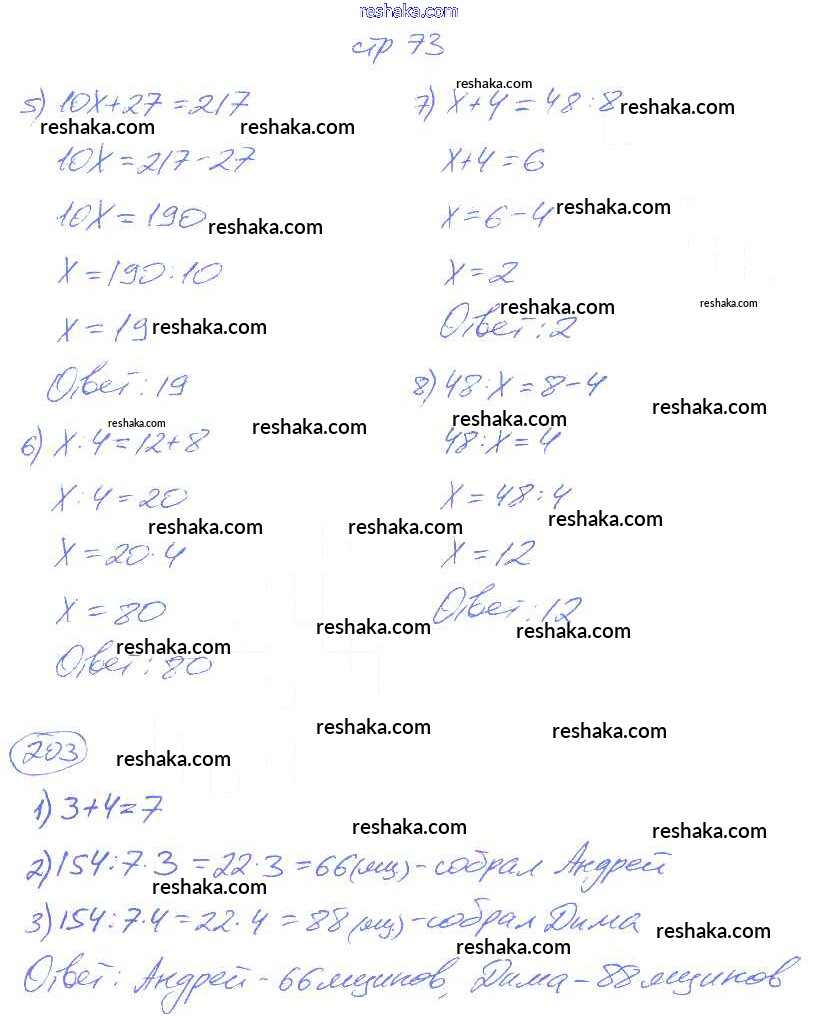 reshaka.com
стр 73
5) 10x+27=217
reshaka.com
reshaka.com
10x=217-27
10x=190
reshaka.com
x=190:10
x=19
reshaka.com
Ответ: 19
6) x:4=12+8
reshaka.com
reshaka.com
x:4=20
reshaka.com
x=20·4
x=80
reshaka.com
Ответ: 80
reshaka.com
7) x+4=48:8
reshaka.com
x+4=6
x=6-4
reshaka.com
x=2
reshaka.com
reshaka.com
Ответ: 2
8) 48:x=8-4
reshaka.com
reshaka.com
48:x=4
x=48:4
reshaka.com
reshaka.com
x=12
Ответ: 12
reshaka.com
reshaka.com
reshaka.com
reshaka.com
203
reshaka.com
1) 3+4=7
reshaka.com
reshaka.com
2) 154:7·3=22·3=66(ящ)-собрал Андрей
reshaka.com
3) 154:7·4=22·4=88(ящ)-собрал Дима
reshaka.com
reshaka.com
Ответ: Андрей-66 ящиков, Дима-88 ящиков